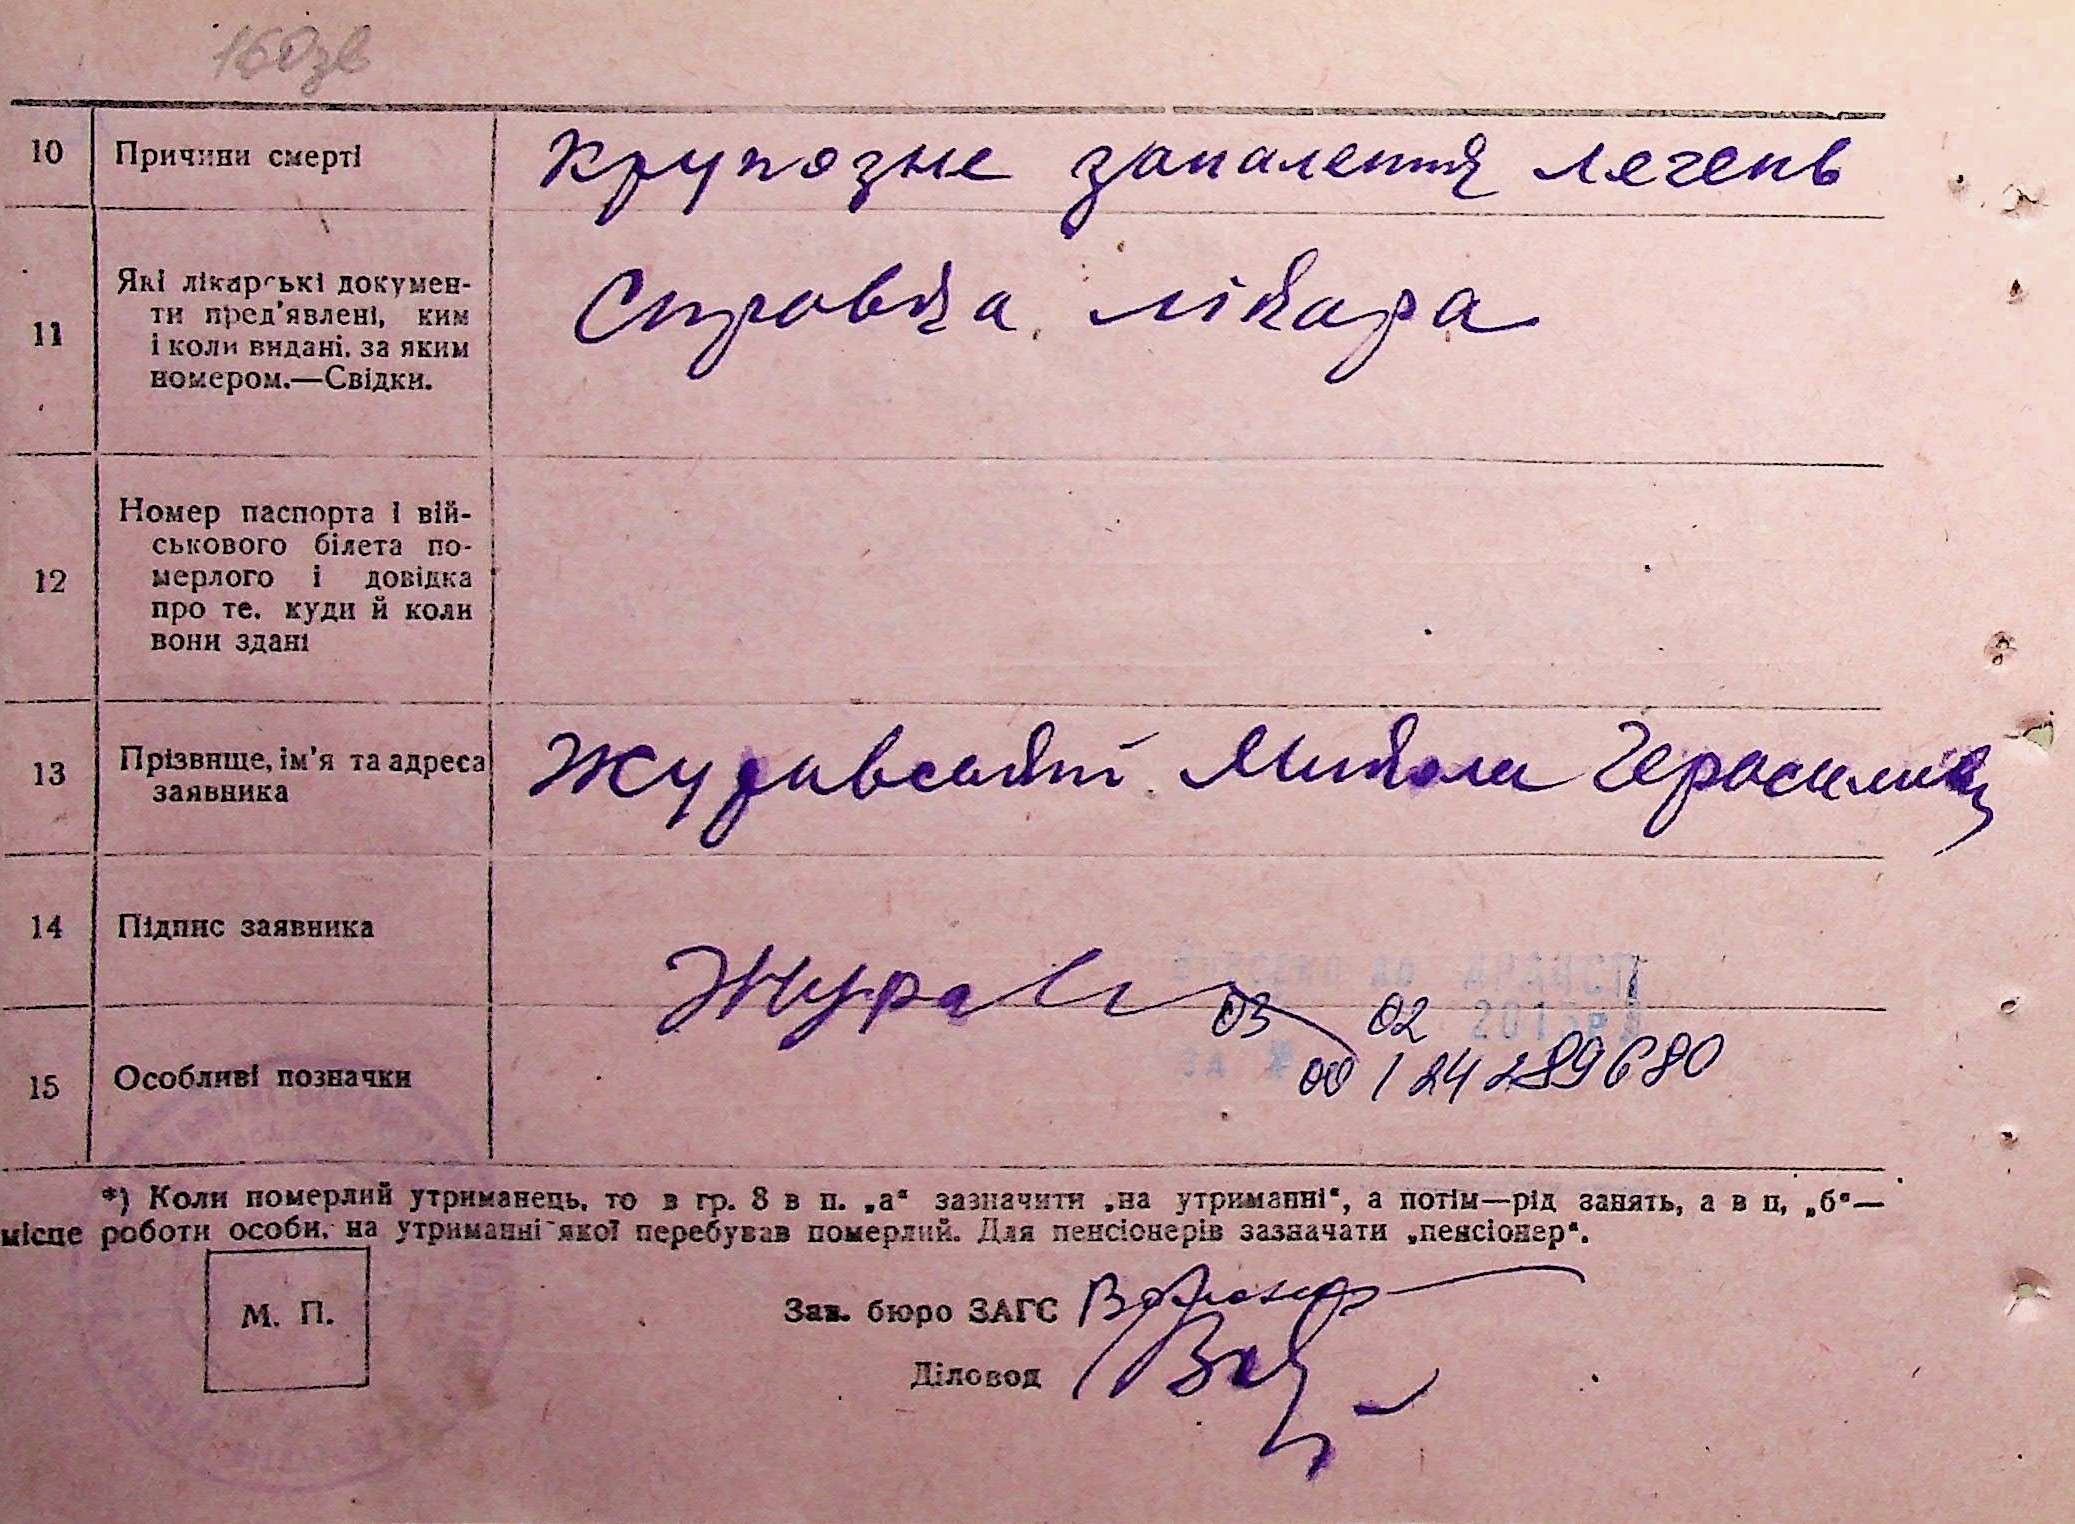 160зв
10 Причини смерті Крупозне запалення легень
11 Які лікарські докумен-
ти пред'явлені, ким
і коли видані, за яким
номером.—Свідки.
Справка лікара
12 Номер паспорта і вій-
ськового білета по-
мерлого і довідка
про те, куди й коли
вони здані
13 Прізвище, ім'я та адреса
заявника
Журавський Микола Герасимов
14 Підпис заявника
Журав
внесено до ДРАЦСГ
03 02 201 р
за № 00124289680
15 Особливі позначки
*) Коли померлий утриманець, то в гр. 8 в п. „а“ зазначити „на утриманні“, а потім—рід занять, а в п. „б“—
місце роботи особи, на утриманні якої перебував померлий. Для пенсіонерів зазначати „пенсіонер“.
М. П.
Зав. бюро ЗАГС
Діловод